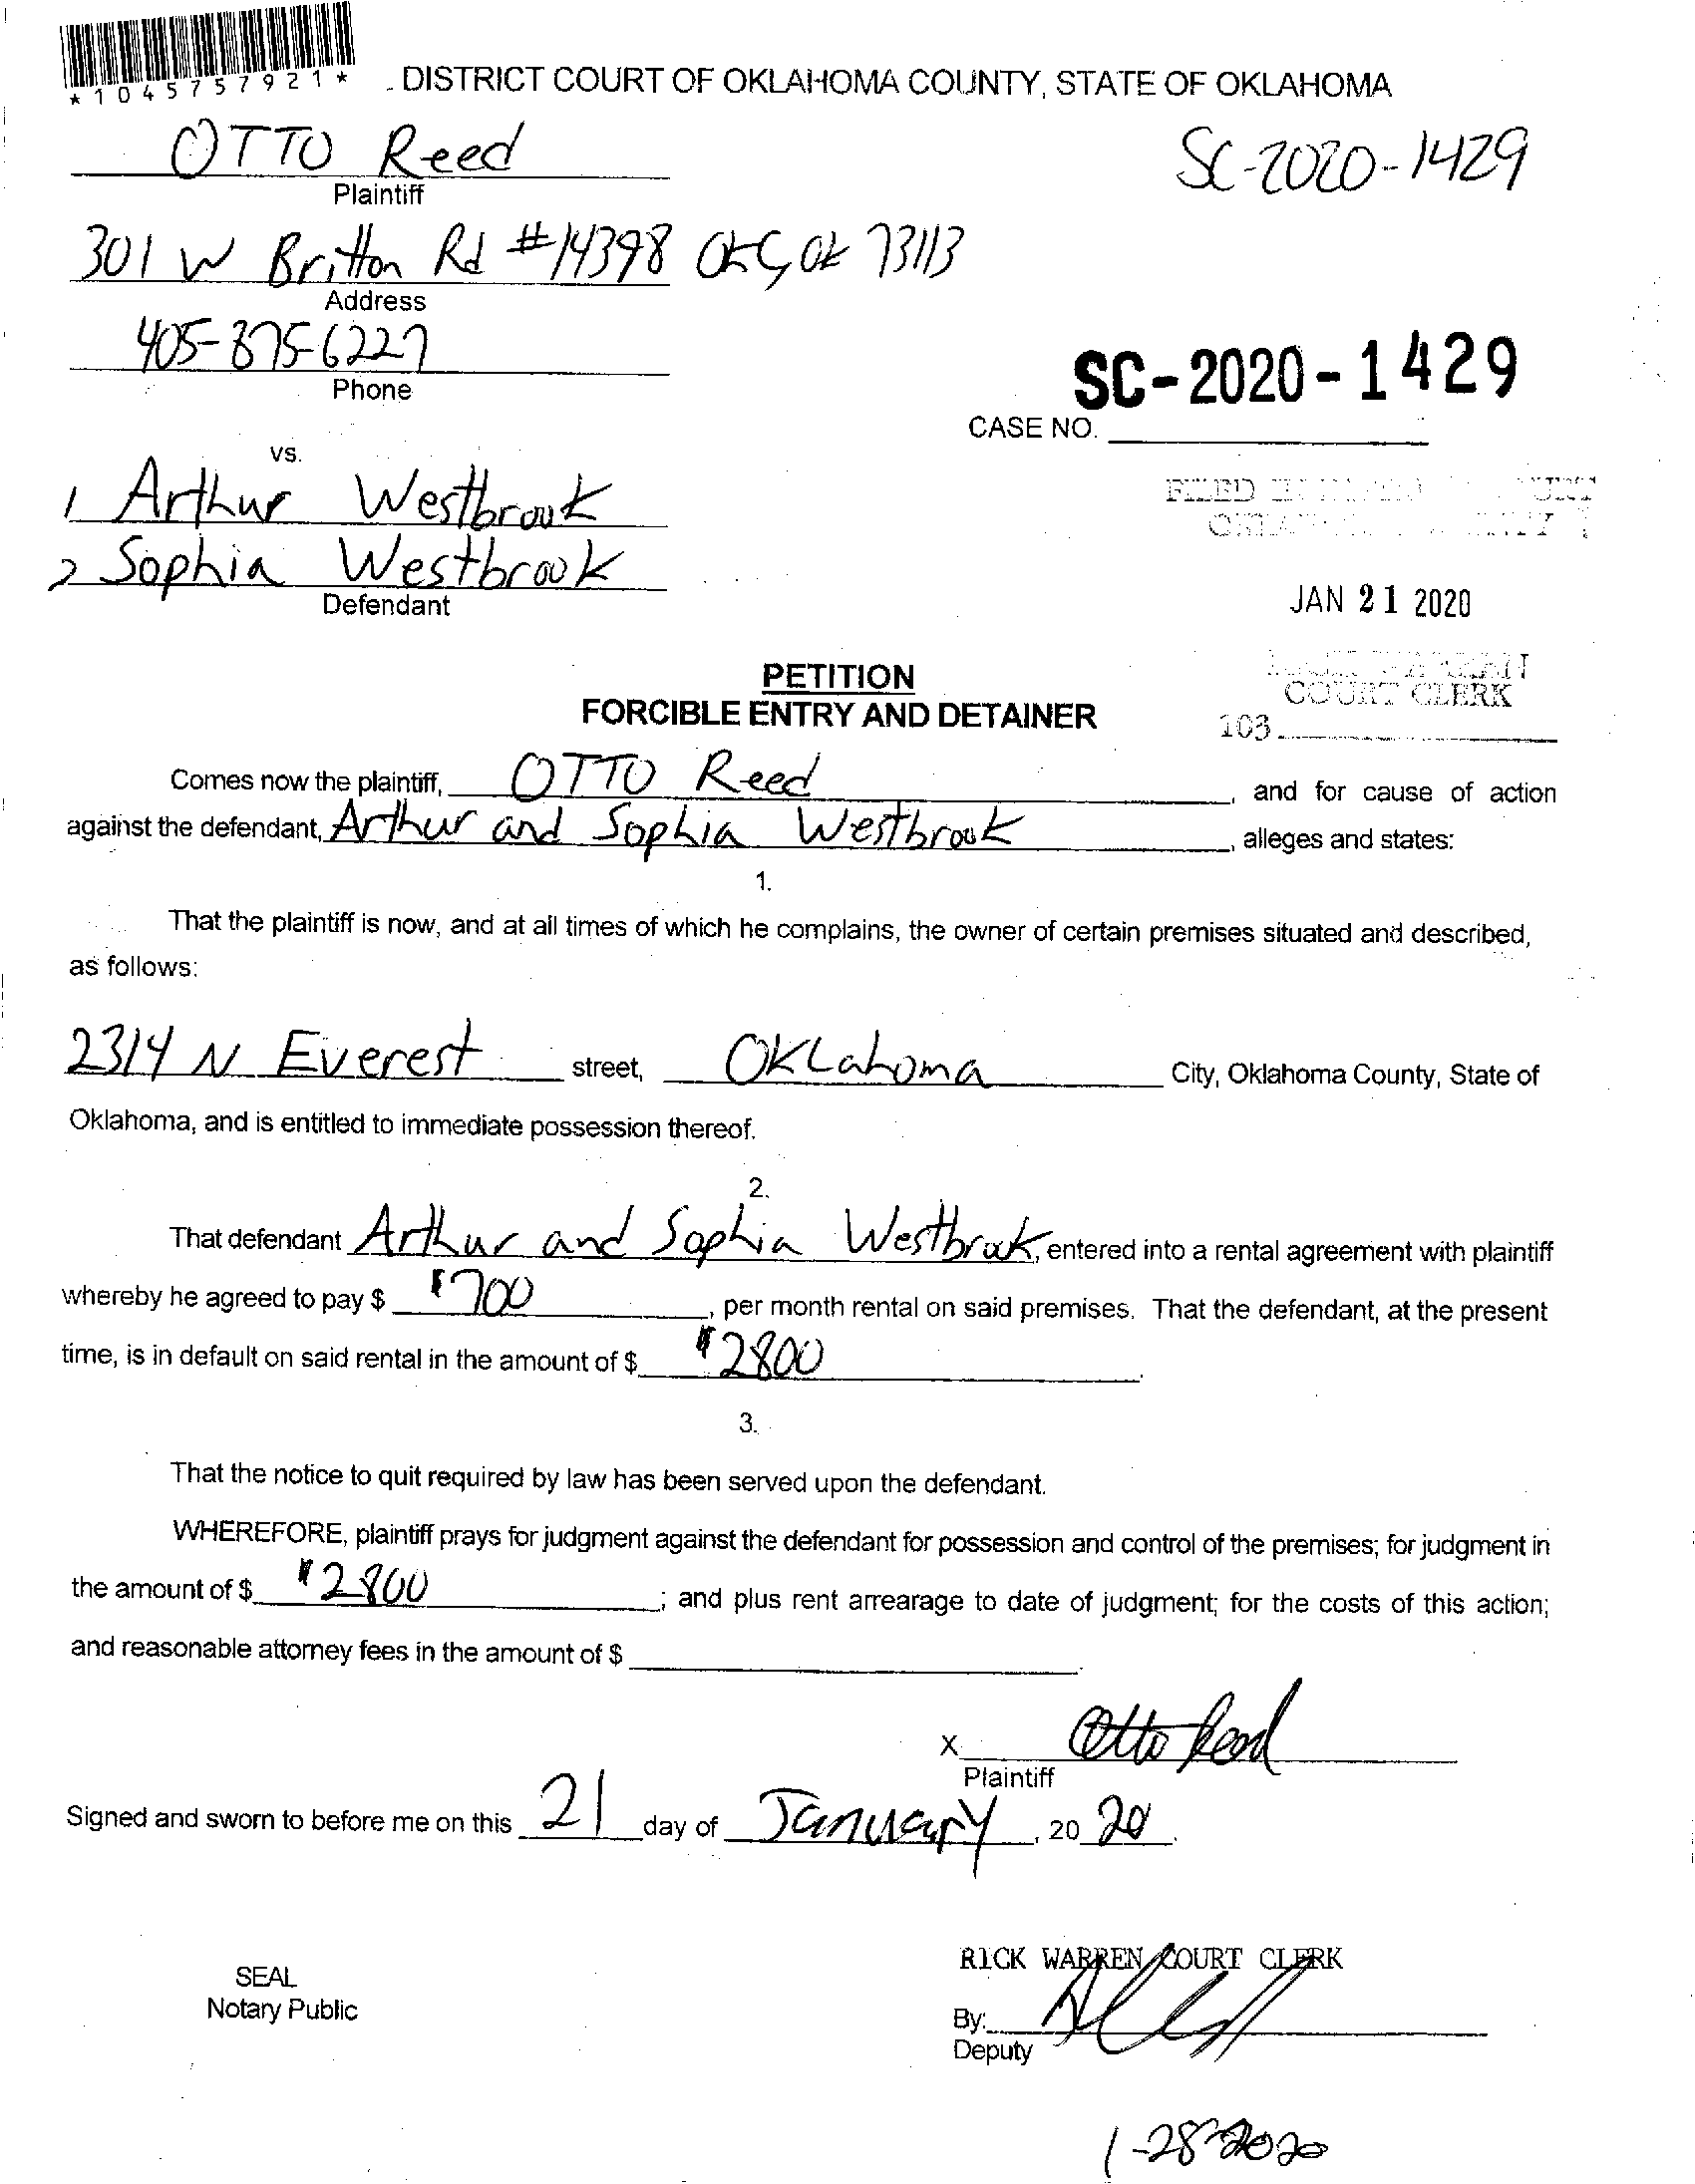 *1045757921*
DISTRICT COURT OF OKLAHOMA COUNTY, STATE OF OKLAHOMA
OTTO Reed
Plaintiff
SC-2020-1429
301 W Britton Rd #14398 OKC, OK 73113
Address
405-875-6227
Phone
SC-2020-1429
CASE NO.
vs.
1 Arthur Westbrook
2 Sophia Westbrook
Defendant
FILED
JAN 21 2020
COURT CLERK
103
PETITION
FORCIBLE ENTRY AND DETAINER
Comes now the plaintiff, OTTO Reed, and for cause of action
against the defendant, Arthur and Sophia Westbrook, alleges and states:
1.
That the plaintiff is now, and at all times of which he complains, the owner of certain premises situated and described,
as follows:
2314 N Everest street, OKLahoma City, Oklahoma County, State of
Oklahoma, and is entitled to immediate possession thereof.
2.
That defendant Arthur and Sophia Westbrook, entered into a rental agreement with plaintiff
whereby he agreed to pay $ $700, per month rental on said premises. That the defendant, at the present
time, is in default on said rental in the amount of $ $2800.
3.
That the notice to quit required by law has been served upon the defendant.
WHEREFORE, plaintiff prays for judgment against the defendant for possession and control of the premises; for judgment in
the amount of $ $2800; and plus rent arrearage to date of judgment; for the costs of this action;
and reasonable attorney fees in the amount of $
X Otto Reed
Plaintiff
Signed and sworn to before me on this 21 day of January, 20 20.
RICK WARREN COURT CLERK
SEAL
Notary Public
By:
Deputy
1-28-2020